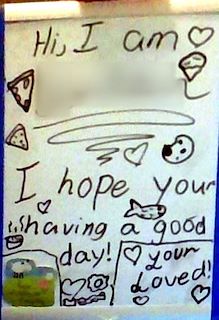 Hi, I am
I hope your
having a good
day!
your
loved!